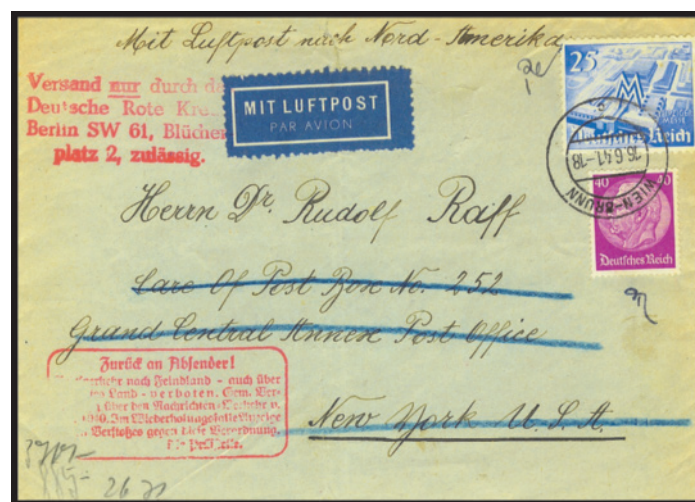 Mit Luftpost nach Nord-Amerika
Versand nur durch da
Deutsche Rote Kreu
Berlin SW 61, Blücher
platz 2, zulässig.
MIT LUFTPOST
PAR AVION
25
Reich
26.6.41.-18
WIEN-BRUNN
40 40
Deutsches Reich
Herrn Dr. Rudolf Raff
Care Of Post Box No. 252
Grand Central Annex Post Office
New York U.S.A.
Zurück an Absender!
nach Feindland - auch über
Land - verboten. Gem. Ver-
über den Nachrichten-Verkehr v.
1940. Im Wiederholungsfalle Anzeige
Verstoßes gegen diese Verordnung.
26